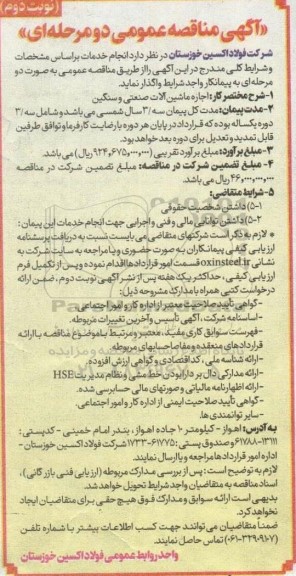 (نوبت دوم)
«آگهی مناقصه عمومی دو مرحله‌ای»
شرکت فولاد اکسین خوزستان در نظر دارد انجام خدمات بر اساس مشخصات
و شرایط کلی مندرج در این آگهی را از طریق مناقصه عمومی به صورت دو
مرحله‌ای به پیمانکار واجد شرایط واگذار نماید.
۱- شرح مختصر کار: اجاره ماشین آلات صنعتی و سنگین
۲- مدت پیمان: مدت کل پیمان سه /۳ سال شمسی می باشد و شامل سه /۳
دوره یکساله بوده که قرارداد در پایان هر دوره با رضایت کارفرما و توافق طرفین
قابل تمدید و تعدیل برای دوره بعد خواهد بود.
۳- مبلغ برآورد: مبلغ برآورد تقریبی (۹۲۴،۶۷۵،۰۰۰،۰۰۰) ریال می باشد.
۴- مبلغ تضمین شرکت در مناقصه: مبلغ تضمین شرکت در مناقصه
ریال می باشد.
۵- شرایط متقاضی:
۵-۱) داشتن شخصیت حقوقی
۵-۲) داشتن توانایی مالی و فنی و اجرایی جهت انجام خدمات این پیمان:
* لازم به ذکر است شرکتهای متقاضی می بایست نسبت به دریافت پرسشنامه
ارزیابی کیفی پیمانکاران به صورت حضوری و یا مراجعه به سایت شرکت به
نشانی oxinsteel.ir قسمت امور قراردادها اقدام نموده و پس از تکمیل فرم
ارزیابی کیفی، حداکثر یک هفته پس از نشر آگهی نوبت دوم، ضمن ارائه
درخواست کتبی همراه با مدارک مشروحه ذیل:
- گواهی تأیید صلاحیت معتبر از اداره کار و امور اجتماعی.
- اساسنامه شرکت، آگهی تأسیس و آخرین تغییرات مربوطه.
- فهرست سوابق کاری مفید، معتبر و مرتبط با موضوع مناقصه با ارائه
قراردادهای منعقده و مفاصاحسابهای مربوطه.
- ارائه شناسه ملی، کد اقتصادی و گواهی ارزش افزوده.
- ارائه مدارکی دال بر دارا بودن خط مشی و نظام مدیریت HSE
- ارائه اظهارنامه مالیاتی و صورتهای مالی حسابرسی شده.
- گواهی تأیید صلاحیت ایمنی از اداره کار و امور اجتماعی.
- سایر توانمندی ها.
به آدرس: اهواز - کیلومتر ۱۰ جاده اهواز، بندر امام خمینی - کدپستی:
۶۱۷۸۸-۱۳۱۱۱ و صندوق پستی: ۶۱۷۷۵-۱۷۳۳ شرکت فولاد اکسین خوزستان -
اداره امور قراردادها مراجعه و یا ارسال نمایند.
لازم به توضیح است: پس از بررسی مدارک مربوطه (ارزیابی فنی بازرگانی)،
اسناد مناقصه به متقاضیان واجد شرایط تحویل خواهد شد.
بدیهی است ارائه سوابق و مدارک فوق هیچ حقی برای متقاضیان ایجاد
نخواهد کرد.
ضمناً متقاضیان می توانند جهت کسب اطلاعات بیشتر با شماره تلفن
تماس حاصل نمایند.
واحد روابط عمومی فولاد اکسین خوزستان